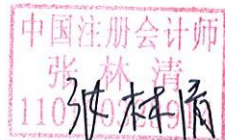 中国注册会计师
张林清
110
张林清